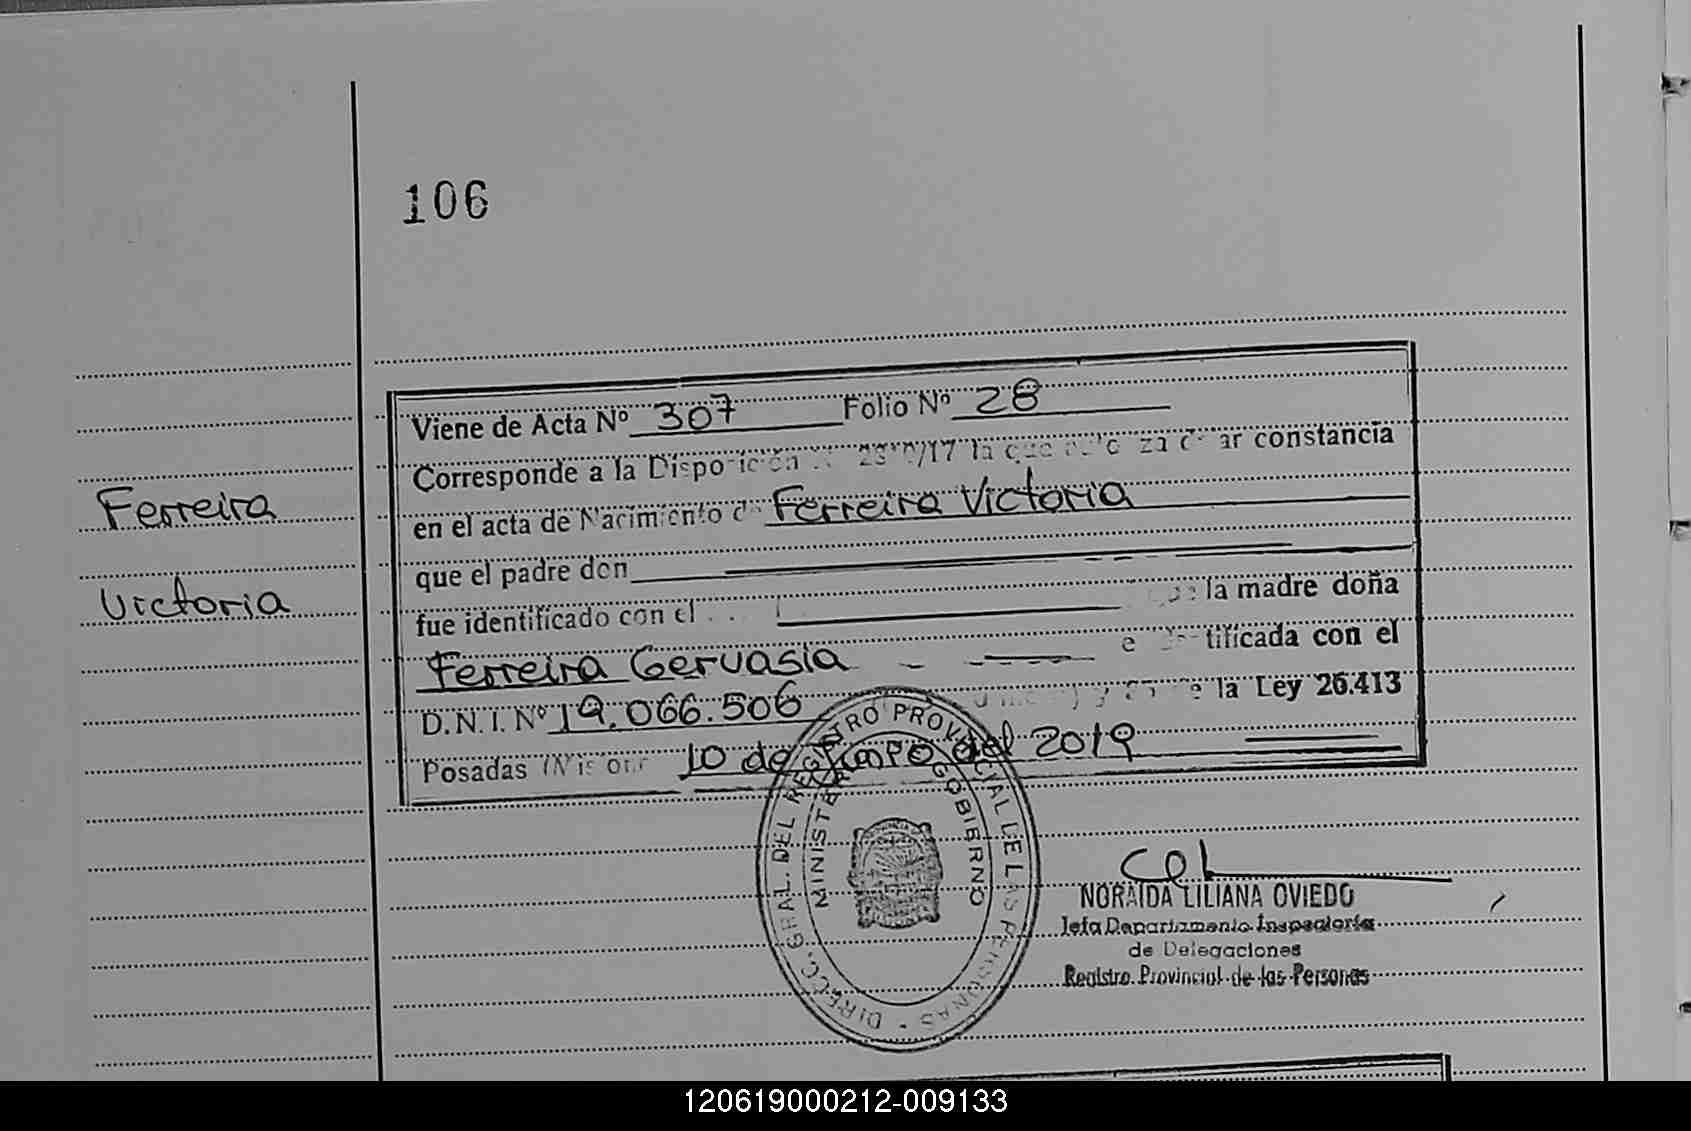 106
Ferreira
Victoria
Viene de Acta Nº 307 Folio Nº 28
Corresponde a la Disposición /17 la que constancia
en el acta de Nacimiento de Ferreira Victoria
que el padre don
fue identificado con el la madre doña
Ferreira Gervasia con el
D.N.I. Nº 19.066.506 la Ley 26.413
Posadas (Misiones 10 de del 2019
DIRECC. GRAL. DEL REGISTRO PROVINCIAL DE LAS PERSONAS
MINISTERIO GOBIERNO
NORAIDA LILIANA OVIEDO
Jefa Departamento Inspectoría
de Delegaciones
Registro Provincial de las Personas
120619000212-009133